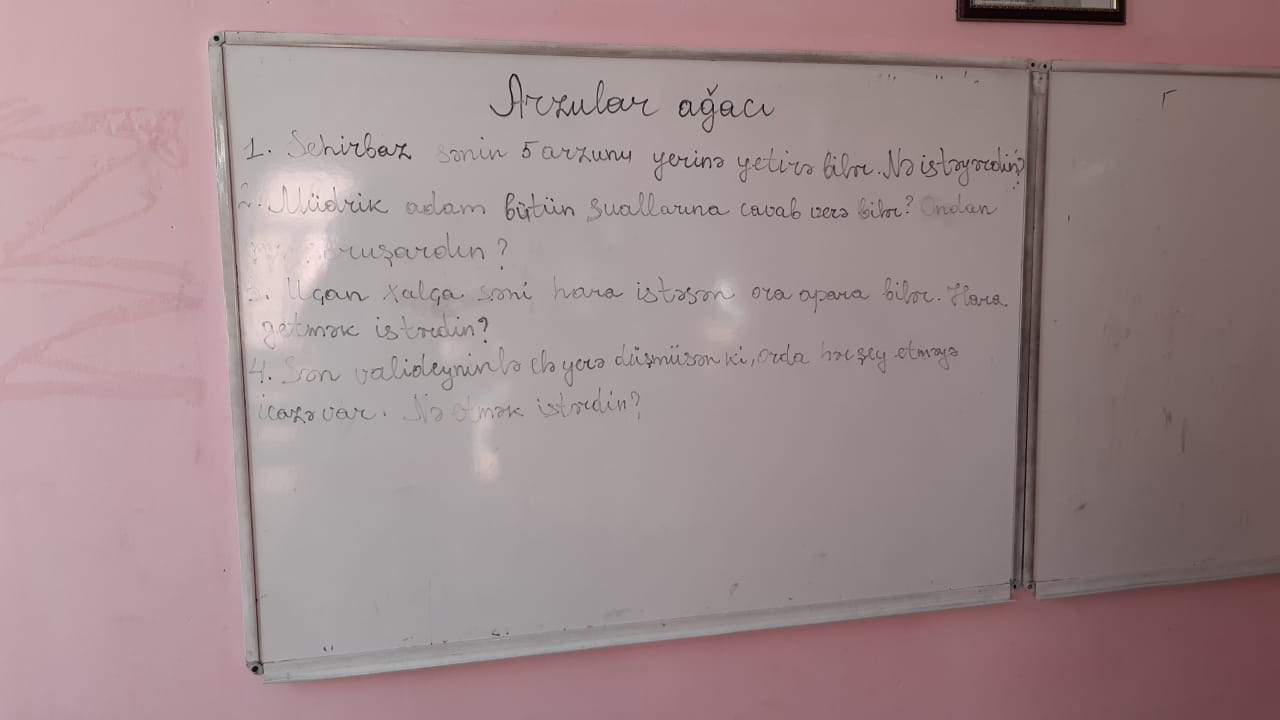 Arzular ağacı
1. Sehirbaz sənin 5 arzunu yerinə yetirə bilər. Nə istəyərdin?
2. Müdrik adam bütün suallarına cavab verə bilər? Ondan
soruşardın?
3. Uçan xalça səni hara istəsən ora apara bilər. Hara
getmək istərdin?
4. Sən valideyninlə elə yerə düşmüsən ki, orda hər şey etməyə
icazə var. Nə etmək istərdin?